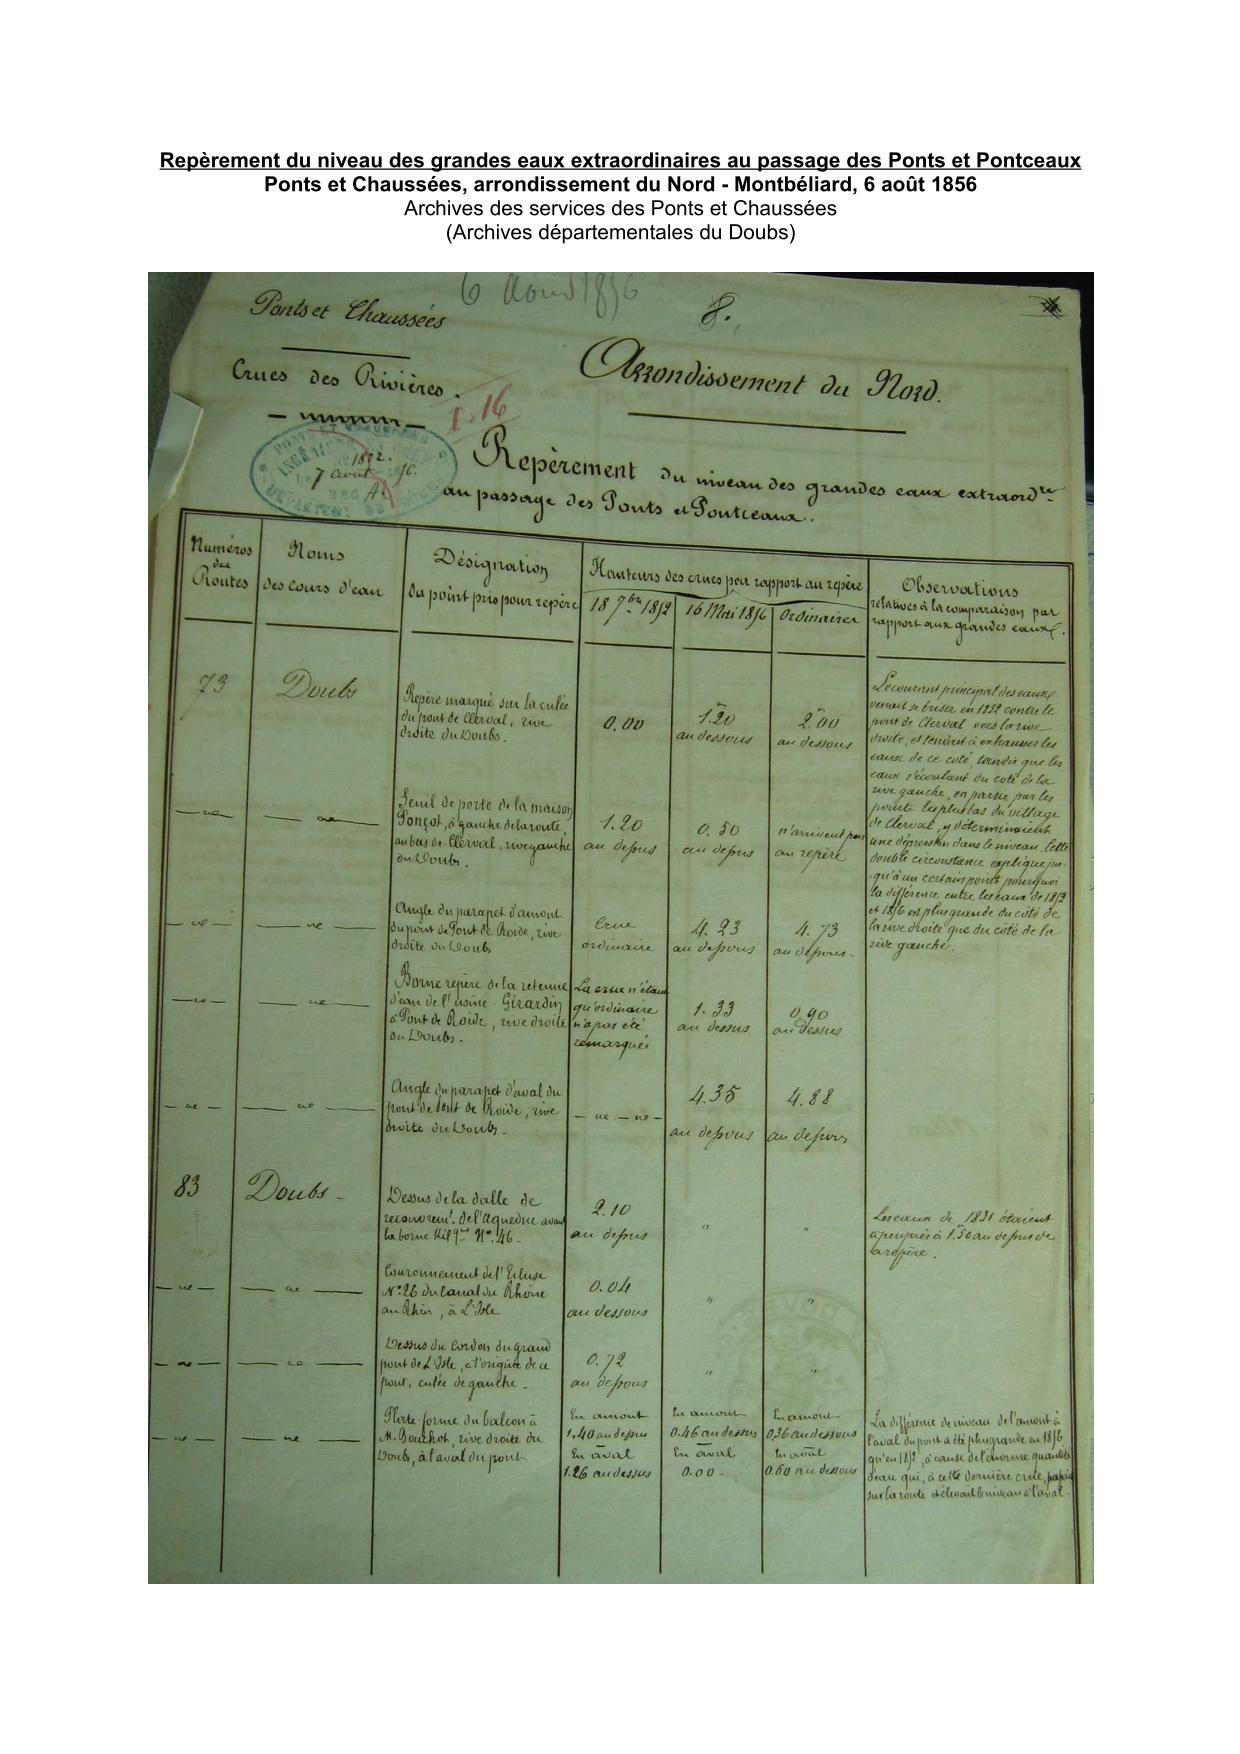 Repèrement du niveau des grandes eaux extraordinaires au passage des Ponts et Pontceaux
Ponts et Chaussées, arrondissement du Nord - Montbéliard, 6 août 1856
Archives des services des Ponts et Chaussées
(Archives départementales du Doubs)
6 Aout 1856
8.
Ponts et Chaussées
Arrondissement du Nord.
Crues des Rivières.
I.16
7 août
Repèrement du niveau des grandes eaux extraord.res
au passage des Ponts et Pontceaux.
Numéros
des
Routes
Noms
des cours d'eau
Désignation
du point pris pour repère
Hauteurs des crues par rapport au repère
18 7bre 1852
16 Mai 1856
Ordinaires
Observations
relatives à la comparaison par
rapport aux grandes eaux.
73
Doubs
Repère marqué sur la culée
du pont de Clerval, rive
droite du Doubs.
0.00
1.20
au dessous
2.00
au dessous
Le courant principal des eaux
venait se briser en 1852 contre le
pont de Clerval vers la rive
droite, et tendait à exhausser les
eaux de ce coté, tandis que les
eaux s'écoulant du coté de la
rive gauche, en partie par les
points les plus bas du village
de Clerval, y déterminaient
une dépression dans le niveau. Cette
double circonstance explique jus-
qu'à un certain point pourquoi
la différence entre les eaux de 1852
et 1856 est plus grande du coté de
la rive droite que du coté de la
rive gauche.
Seuil de porte de la maison
Ponçot, à gauche de la route,
au bas de Clerval, rive gauche
du Doubs.
1.20
au dessus
0.50
au dessus
n'arrivent pas
au repère
Angle du parapet d'amont
du pont de Pont de Roide, rive
droite du Doubs
Crue
ordinaire
4.23
au dessous
4.73
au dessous
Borne repère de la retenue
d'eau de l'usine Girardin
à Pont de Roide, rive droite
du Doubs.
La crue n'étant
qu'ordinaire
n'a pas été
remarquée
1.33
au dessus
0.90
au dessus
Angle du parapet d'aval du
pont de Pont de Roide, rive
droite du Doubs.
4.35
au dessous
4.88
au dessous
83
Doubs
Dessus de la dalle de
recouvremt. de l'aqueduc avant
la borne Kilque N° 46
2.10
au dessus
"
"
Les eaux de 1831 étaient
à peu près à 1.50 au dessus de
la repère.
Couronnement de l'Ecluse
N° 26 du Canal du Rhône
au Rhin, à L'Isle
0.04
au dessous
"
"
Dessus du Cordon du grand
pont de L'Isle, à l'origine de ce
pont, culée de gauche
0.72
au dessous
"
"
Plate-forme du balcon à
M. Bouchot, rive droite du
Doubs, à l'aval du pont
En amont
1.40 au dessus
En aval
1.26 au dessus
En amont
0.46 au dessus
En aval
0.00
En amont
0.36 au dessous
En aval
0.60 au dessous
La différence de niveau de l'amont à
l'aval du pont a été plus grande en 1856
qu'en 1852, à cause de l'énorme quantité
d'eau qui, à cette dernière crue,
sur la route et élevait le niveau à l'aval.